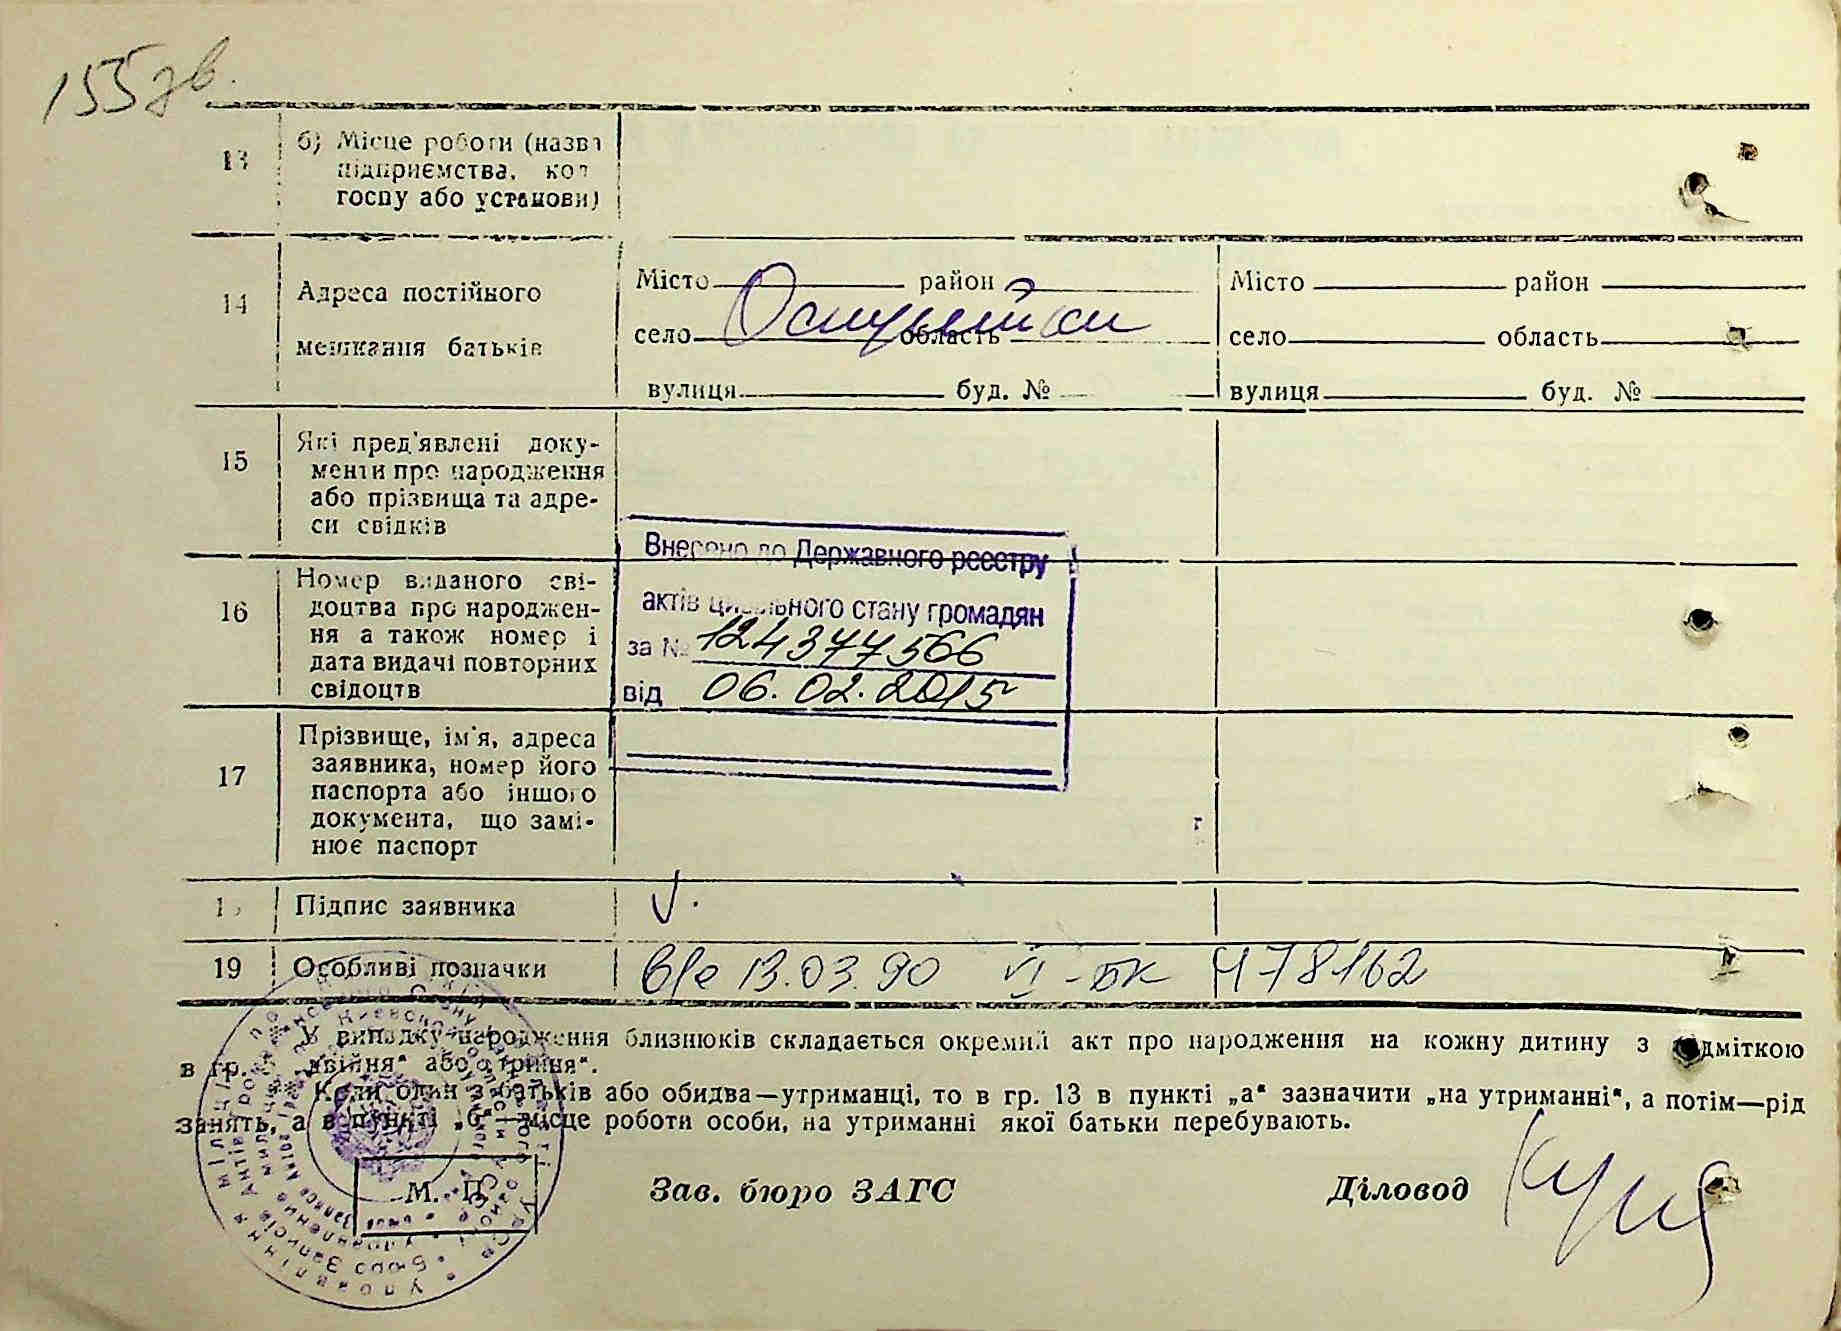 155 зв.
13 б) Місце роботи (назва
підприємства, кол
госпу або установи)
14 Адреса постійного
мешкання батьків
Місто район
село область
вулиця буд. №
Місто район
село область
вулиця буд. №
15 Які пред'явлені доку-
менти про народження
або прізвища та адре-
си свідків
16 Номер виданого сві-
доцтва про народжен-
ня а також номер і
дата видачі повторних
свідоцтв
Внесено до Державного реєстру
актів цивільного стану громадян
за № 124377566
від 06.02.2015
17 Прізвище, ім'я, адреса
заявника, номер його
паспорта або іншого
документа, що замі-
нює паспорт
г
Підпис заявника
19 Особливі позначки в/е 13.03.90 VI-БК Ч78162
У випадку народження близнюків складається окремий акт про народження на кожну дитину з відміткою
в гр. „двійня“ або „трійня“.
Коли один з батьків або обидва—утриманці, то в гр. 13 в пункті „а“ зазначити „на утриманні“, а потім—рід
занять, а в пункті „б“—місце роботи особи, на утриманні якої батьки перебувають.
М. П.
Зав. бюро ЗАГС Діловод